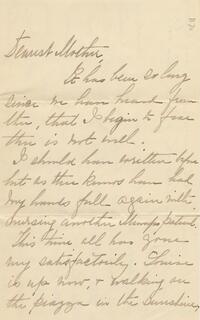 Dearest Mother,
It has been so long
since we have heard from
thee, that I begin to fear
thee is not well.
I should have written before
but as thee knows have had
my hands full again with
nursing another Mumps patient.
This time all has gone
very satisfactorily. Louise
is up now, & walking on
the piazza in the sunshine,